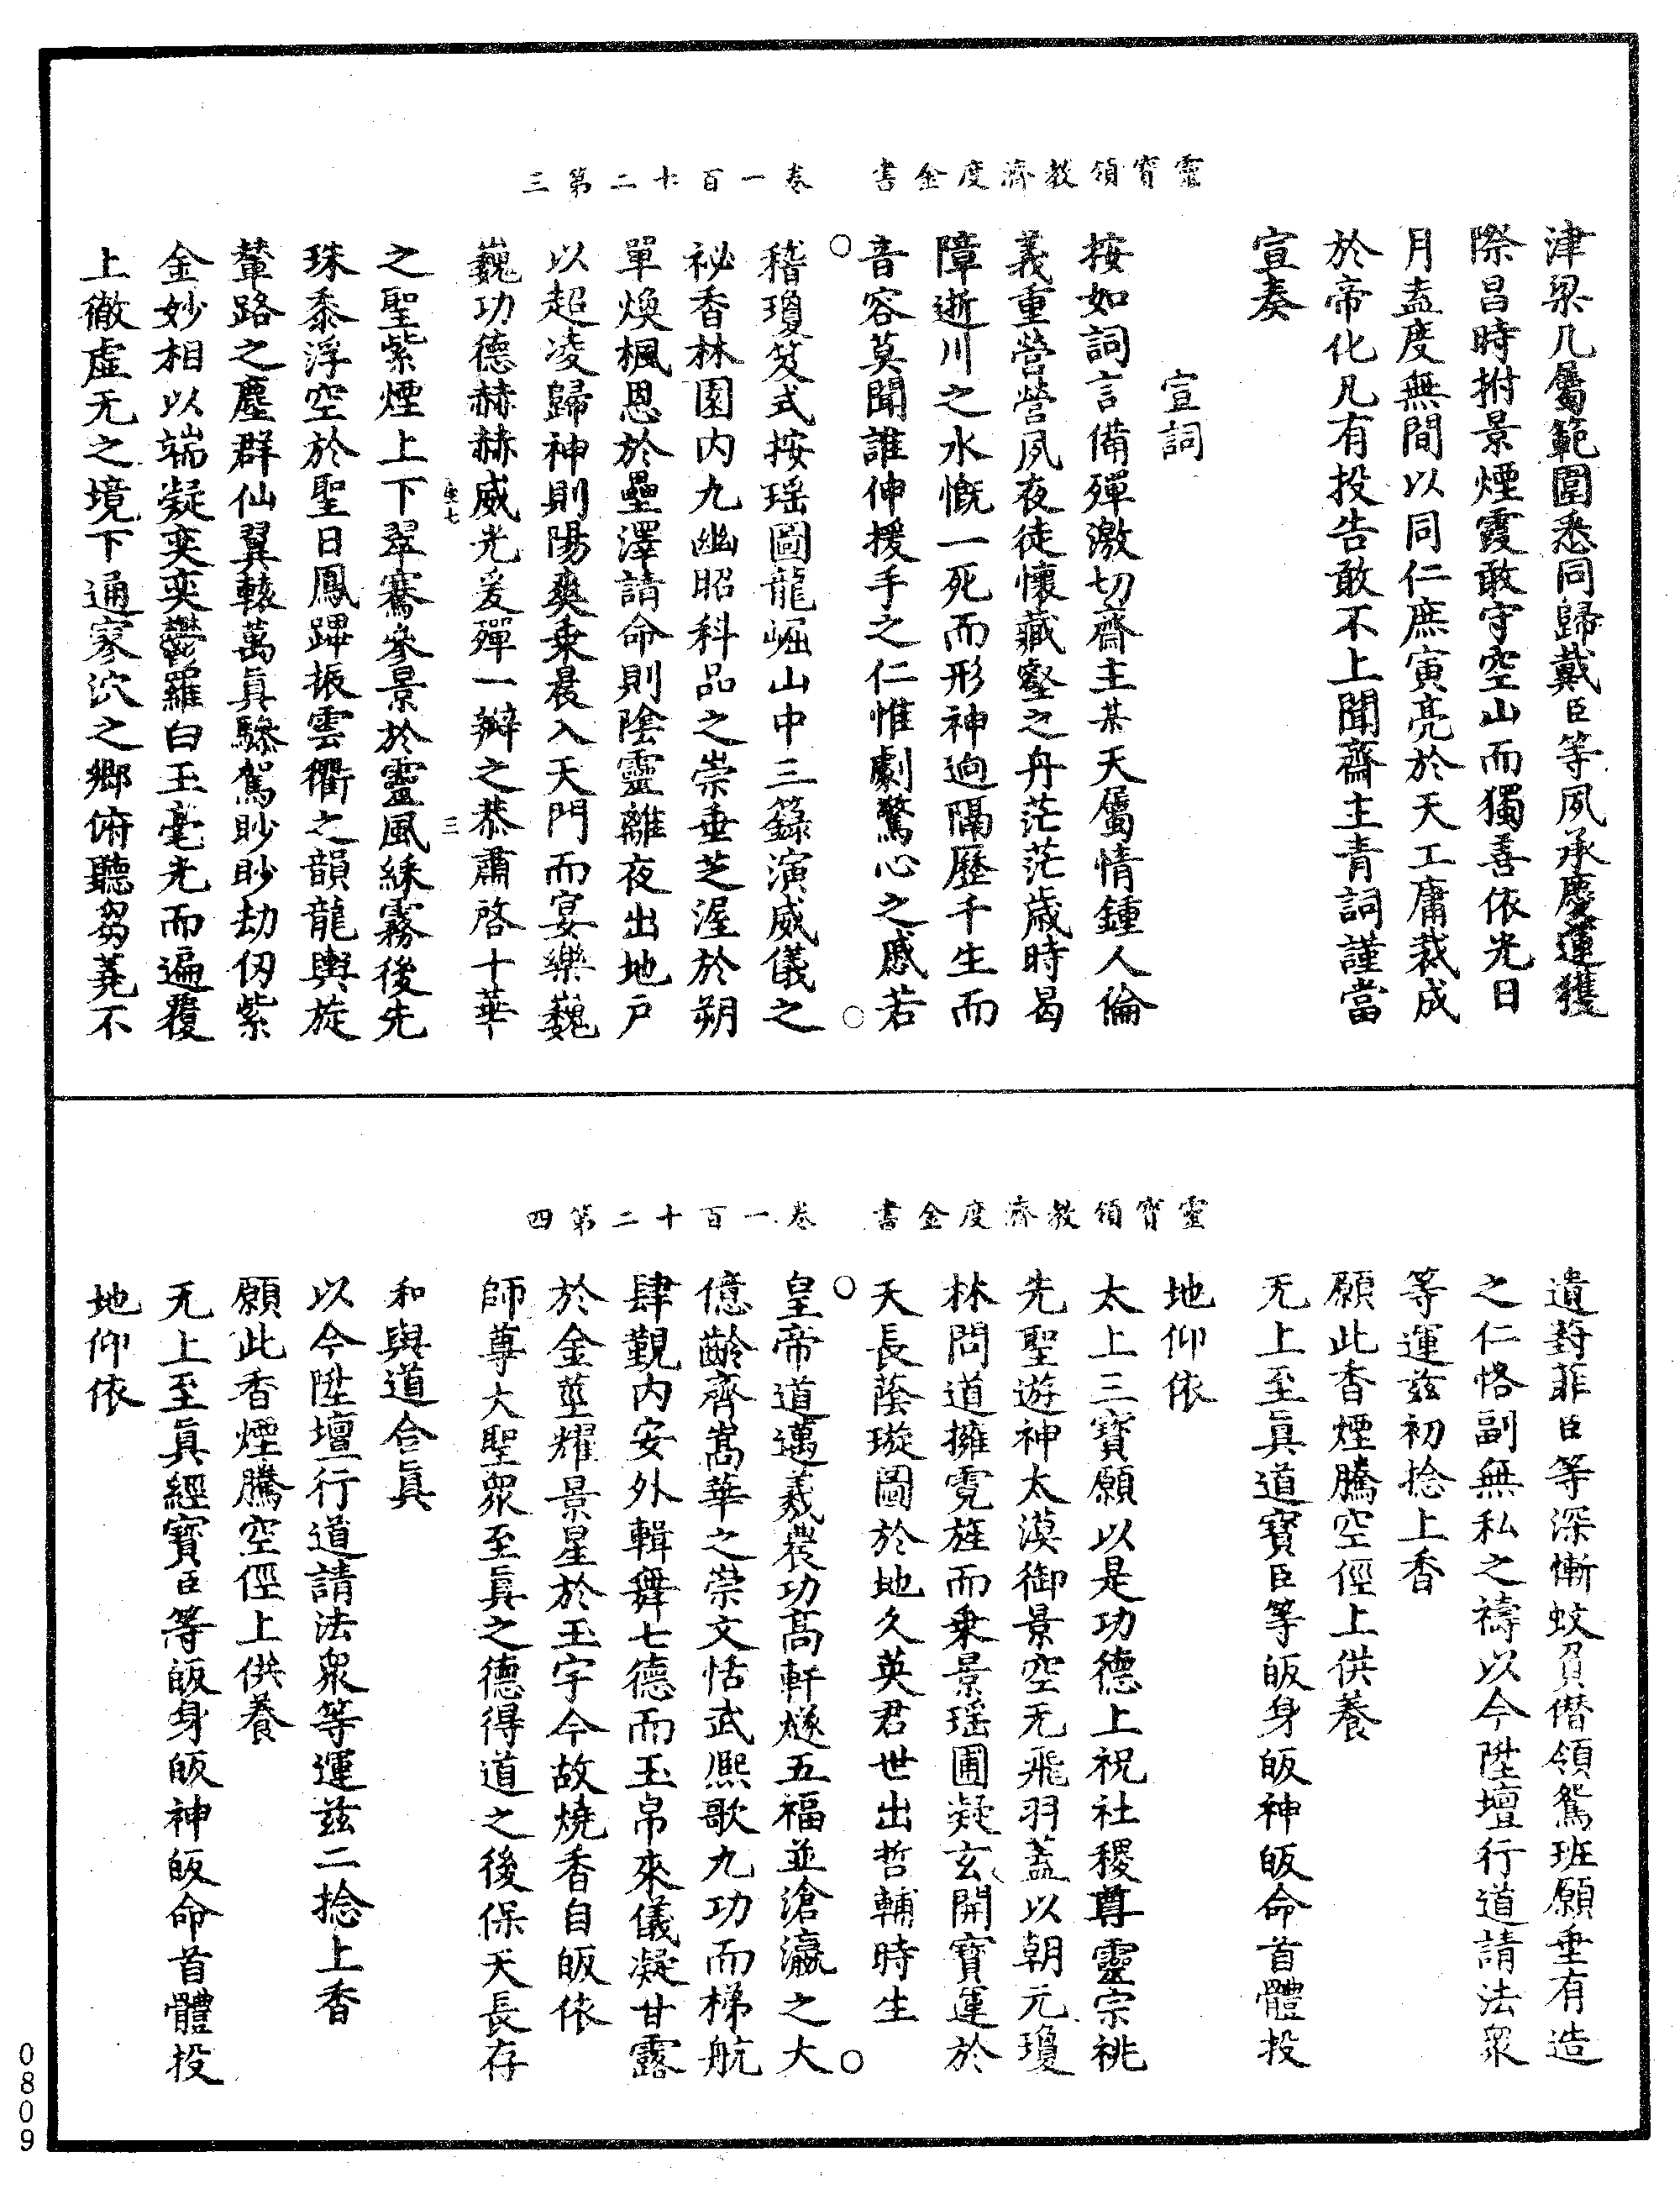 靈寶領教濟度金書　卷一百十二第三
津梁凡屬範圍悉同歸戴臣等夙承慶運獲
際昌時拊景煙霞敢守空山而獨善依光日
月盍度無間以同仁庶寅亮於天工庸裁成
於帝化凡有投告敢不上聞齋主青詞謹當
宣奏
宣詞
按如詞言備殫激切齋主某天屬情鍾人倫
義重營營夙夜徒懷藏壑之舟茫茫歲時曷
障逝川之水慨一死而形神逈隔歷千生而
音容莫聞誰伸援手之仁惟劇驚心之慼若
稽瓊笈式按瑶圖龍崛山中三籙演威儀之
祕香林園内九幽昭科品之崇垂芝渥於朔
單煥楓恩於壘澤請命則陰靈離夜出地戶
以超凌歸神則陽爽乗晨入天門而宴樂巍
巍功德赫赫威光爰殫一瓣之恭肅啓十華
之聖紫煙上下翠騫參景於靈風綵霧後先
珠黍浮空於聖日鳳蹕振雲衢之韻龍輿旋
輦路之塵群仙翼轅萬眞驂駕眇眇劫仞紫
金妙相以端凝奕奕鬱羅白玉毫光而遍覆
上徹虛无之境下通冢泬之鄉俯聽芻蕘不
靈寶領教濟度金書　卷一百十二第四
遺葑菲臣等深慚蚊負僭領鴛班願垂有造
之仁恪副無私之禱以今陞壇行道請法衆
等運兹初捻上香
願此香煙騰空徑上供養
无上至眞道寶臣等皈身皈神皈命首體投
地仰依
太上三寶願以是功德上祝社稷尊靈宗祧
先聖遊神太漠御景空无飛羽蓋以朝元瓊
林問道擁霓旌而乗景瑶圃凝玄開寶運於
天長蔭璇圖於地久英君世出哲輔時生
皇帝道邁羲農功高軒燧五福並滄瀛之大
億齡齊嵩華之崇文恬武熙歌九功而梯航
肆覲内安外輯舞七德而玉帛來儀凝甘露
於金莖耀景星於玉宇今故燒香自皈依
師尊大聖衆至眞之德得道之後保天長存
和與道合眞
以今陞壇行道請法衆等運兹二捻上香
願此香煙騰空徑上供養
无上至眞經寶臣等皈身皈神皈命首體投
地仰依
0809